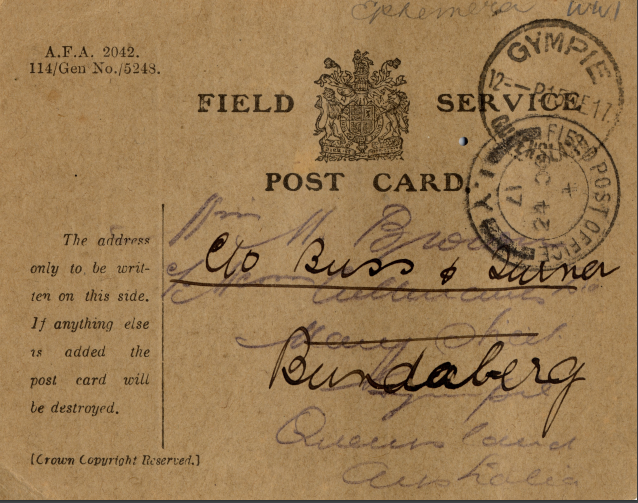 Ephemera WW1
A.F.A. 2042.
114/Gen No./5248.
GYMPIE
12-- P 15 SE 17
QUEENSLAND
FIELD SERVICE
POST CARD.
FIELD POST OFFICE
24
17
The address
only to be writ-
ten on this side.
If anything else
is added the
post card will
be destroyed.
[Crown Copyright Reserved.]
H. Brown
C/o Buss & Turner
Mary Street
Bundaberg
Gympie
Queensland
Australia